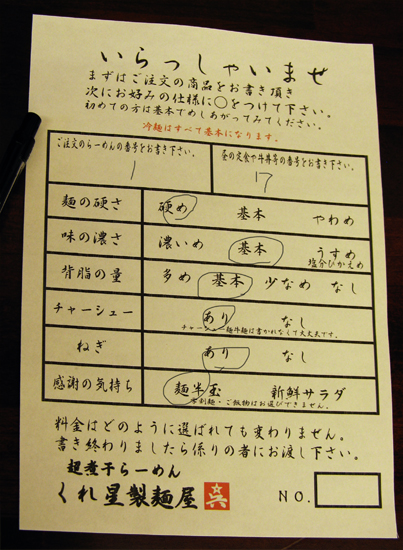 いらっしゃいませ
まずはご注文の商品をお書き頂き
次にお好みの仕様に○をつけて下さい。
初めての方は基本でめしあがってみてください。
冷麺はすべて基本になります。
ご注文のらーめんの番号をお書き下さい。 昼の定食や牛丼等の番号をお書き下さい。
1 17
麺の硬さ 硬め 基本 やわめ
味の濃さ 濃いめ 基本 うすめ
塩分ひかえめ
背脂の量 多め 基本 少なめ なし
チャーシュー あり なし
チャーシュー麺牛麺は書かれなくて大丈夫です。
ねぎ あり なし
感謝の気持ち 麺半玉 新鮮サラダ
・ご飯物はお選びできません。
料金はどのように選ばれても変わりません。
書き終わりましたら係りの者にお渡し下さい。
超煮干らーめん
くれ星製麺屋 呉
NO.